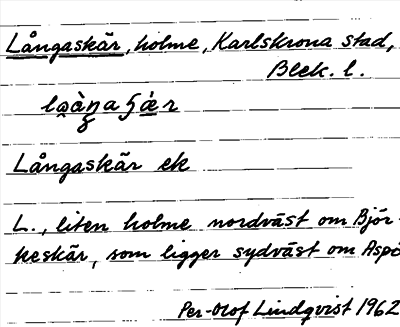 Långaskär, holme, Karlskrona stad,
Blek. l.
Långaskär ek
L., liten holme nordväst om Björ-
keskär, som ligger sydväst om Aspö
Per-Olof Lindqvist 1962